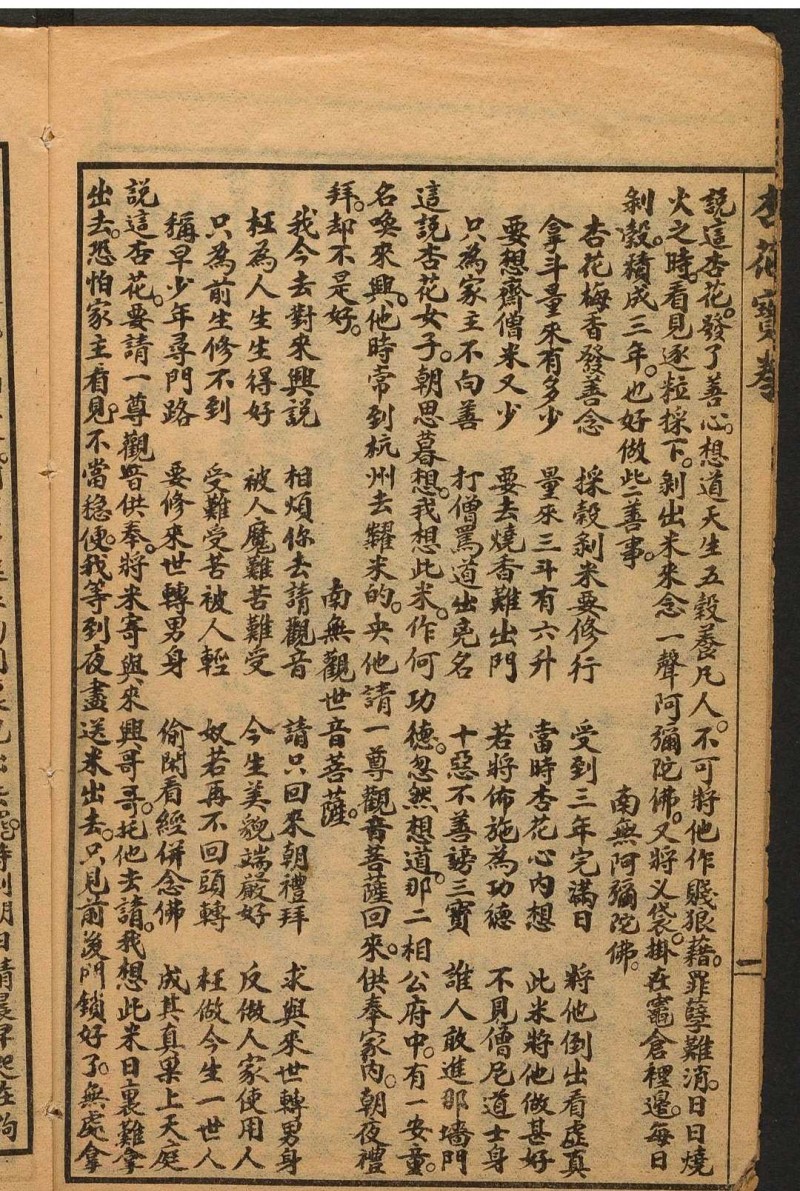 杏花寶卷
二
說這杏花。發了善心。想道天生五穀養凡人。不可將他作賤狼藉。罪孽難消。日日燒
火之時。看見逐粒採下。剝出米來念一聲阿彌陀佛。又將义袋。掛在竈倉裡邊。每日
剝穀。積成三年。也好做此二善事。　南無阿彌陀佛。
杏花梅香發善念　採穀剝米要修行　受到三年完滿日　將他倒出看虛真
拿斗量來有多少　量來三斗有六升　當時杏花心內想　此米將他做甚好
要想齋僧米又少　要去燒香難出門　若將佈施為功德　不見僧尼道士身
只為家主不向善　打僧罵道出免名　十惡不善謗三寶　誰人敢進那墻門
這說杏花女子。朝思暮想。我想此米。作何功德。忽然想道。那二相公府中。有一安童。
名喚來興。他時常到杭州去糶米的。央他請一尊觀音菩薩回來。供奉家內。朝夜禮
拜。却不是好。　南無觀世音菩薩。
我今去對來興說　相煩你去請觀音　請只回來朝禮拜　求與來世轉男身
枉為人生生得好　被人魔難苦難受　今生美貌端嚴好　反做人家使用人
只為前生修不到　受難受苦被人輕　奴若再不回頭轉　枉做今生一世人
稱早少年尋門路　要修來世轉男身　偷閑看經併念佛　成其真果上天庭
說這杏花。要請一尊觀音供奉。將米寄與來興哥哥。托他去請。我想此米日裏難拿
出去。恐怕家主看見。不當穩便。我等到夜盡送米出去。只見前後門鎖好了。無處拿